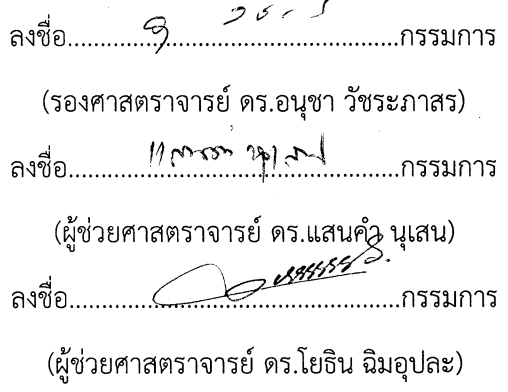 ลงชื่อ..................................................กรรมการ
(รองศาสตราจารย์ ดร.อนุชา วัชระภาสร)
ลงชื่อ..................................................กรรมการ
(ผู้ช่วยศาสตราจารย์ ดร.แสนคำ นุเสน)
ลงชื่อ..................................................กรรมการ
(ผู้ช่วยศาสตราจารย์ ดร.โยธิน ฉิมอุปละ)